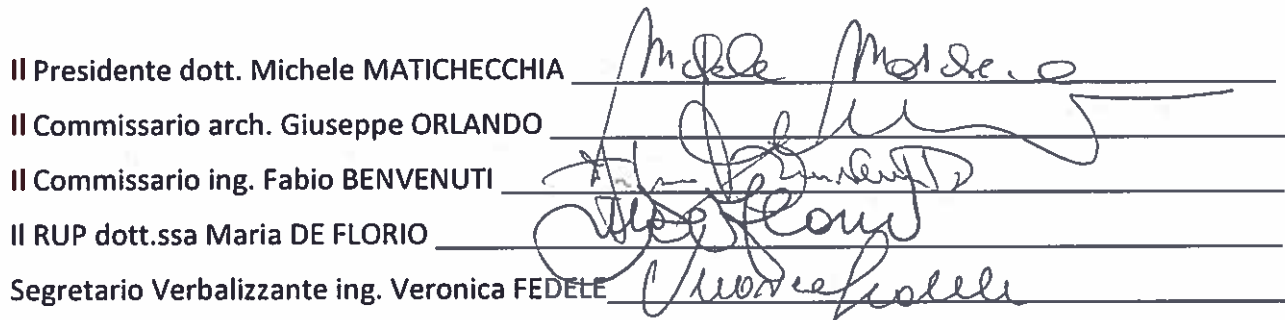 Il Presidente dott. Michele MATICHECCHIA
Il Commissario arch. Giuseppe ORLANDO
Il Commissario ing. Fabio BENVENUTI
Il RUP dott.ssa Maria DE FLORIO
Segretario Verbalizzante ing. Veronica FEDELE